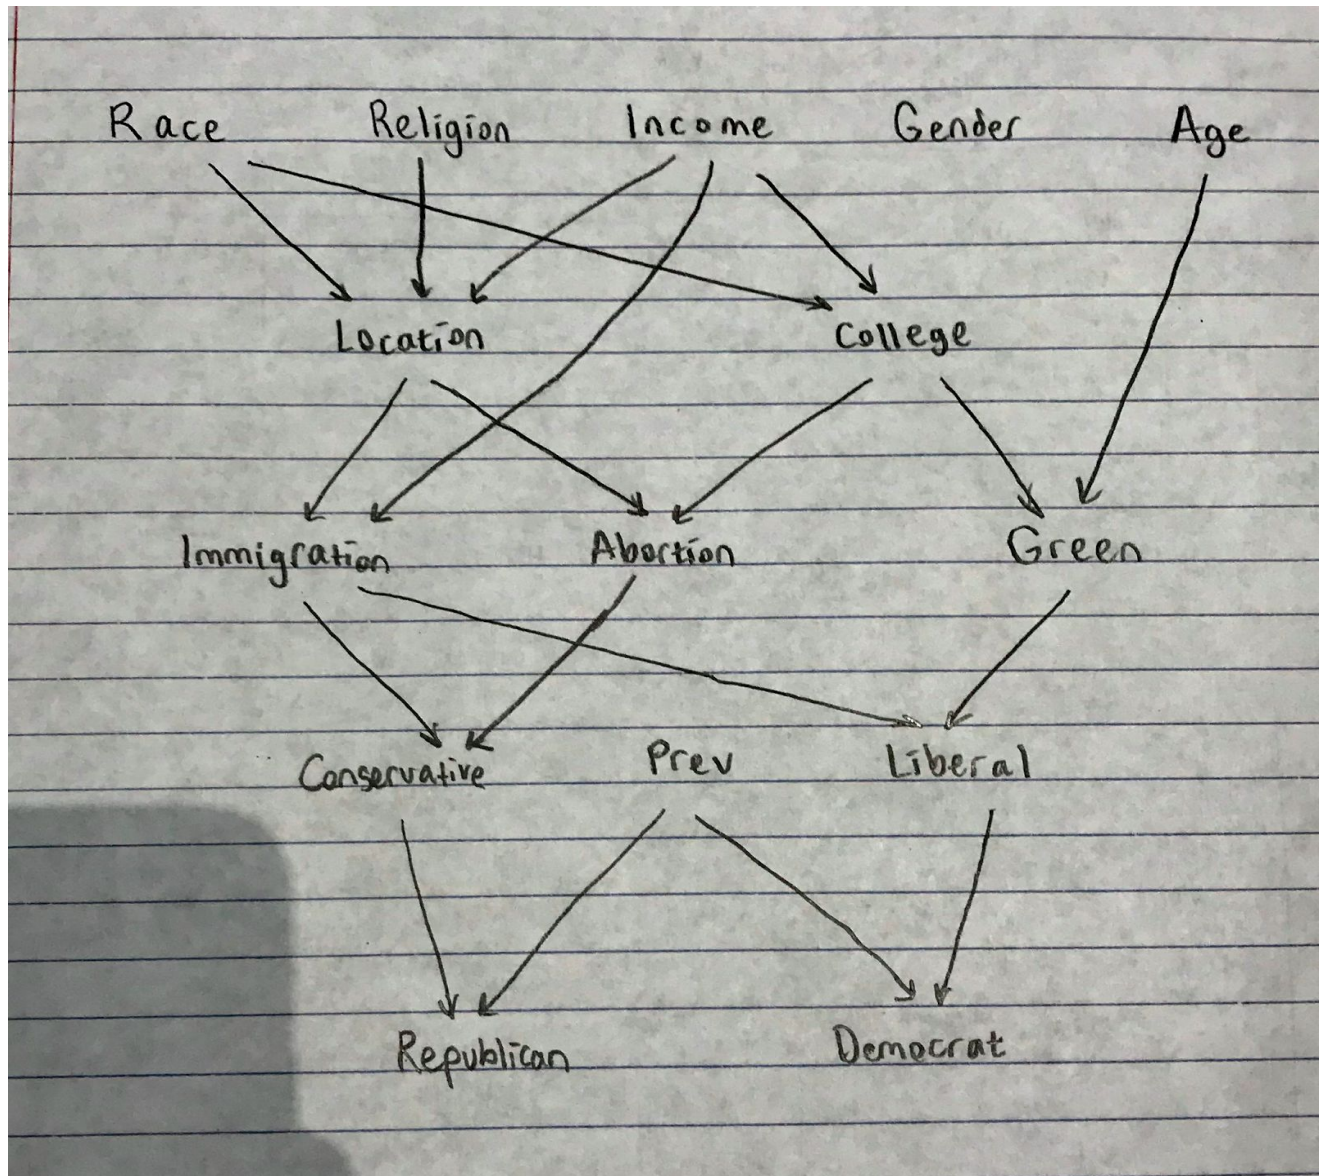 Race Religion Income Gender Age
Location College
Immigration Abortion Green
Conservative Prev Liberal
Republican Democrat